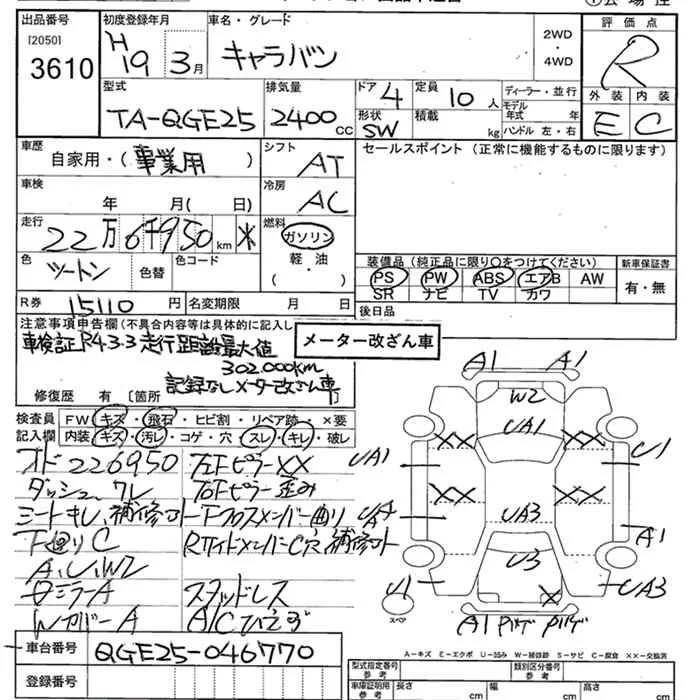 出品番号
[2050]
3610
初度登録年月
H19 3月
車名・グレード
キャラバン
2WD
・
4WD
評価点
R
外装 内装
E C
型式
TA-QGE25
排気量
2400 cc
ドア 4
定員 10人
形状 SW
積載 kg
ディーラー・並行
モデル年式 年
ハンドル 左・右
車歴
自家用・(事業用)
シフト
AT
セールスポイント (正常に機能するものに限ります)
車検
年 月( 日)
冷房
AC
走行
22万6千950km ※
燃料
ガソリン
軽・油
( )
色
ツートン
色替
色コード
装備品(純正品に限り○をつけてください)
PS PW ABS エアB AW
SR ナビ TV カワ
新車保証書
有・無
R券 15110円
名変期限 月 日
後日品
注意事項申告欄(不具合内容等は具体的に記入し
車検証R4.3.3走行距離最大値
302.000km
記録なしメーター改ざん車
修復歴 有 〔箇所
メーター改ざん車
検査員 FW キズ・飛石・ヒビ割・リペア跡・×要
記入欄 内装 キズ・汚レ・コゲ・穴・スレ・キレ・破レ
オド226950
ダッシュワレ
シートキレ、補修コト
下廻りC
A、U、W2
ミラーA
WカバーA
左FピラーXX
右Fピラー歪み
Fクロスメンバー曲り
RサイドメンバーC穴補修コト
スタッドレス
A/Cひえず
A1 A1
W2
UA1
XX XX
UA1
U1
XX XX
UA3
A1
U3
U1
X
UA3
スペア
A1 Pハゲ Pハゲ
A－キズ E－エクボ U－凹み W－補修跡 S－サビ C－腐食 ××－交換済
車台番号 QGE25-046770
登録番号
型式指定番号
参考
類別区分番号
参考
車庫証明用
参考
長さ cm
幅 cm
高さ cm